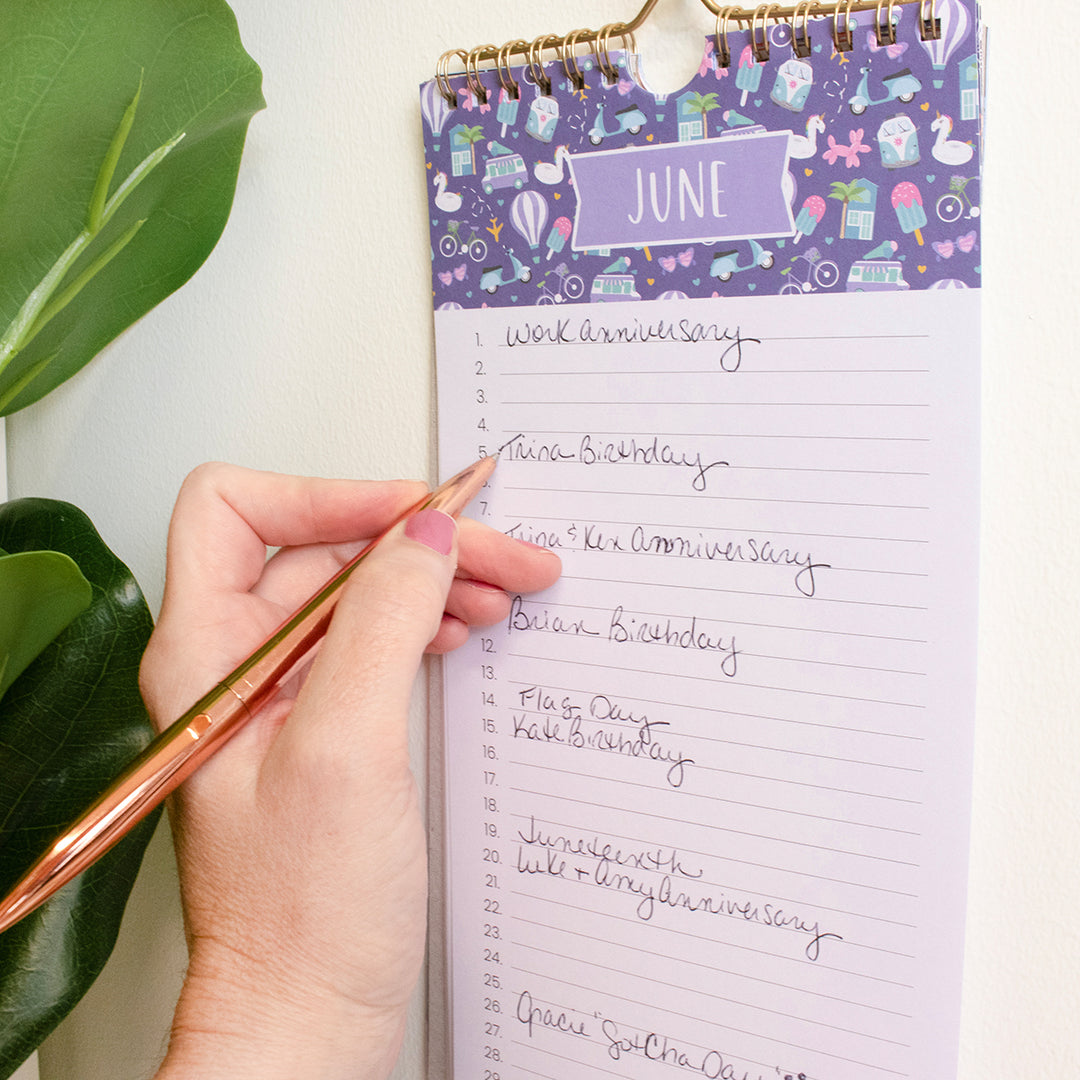 JUNE
1. Work Anniversary
2.
3.
4.
5. Trina Birthday
7.
Trina & Ken Anniversary
Brian Birthday
12.
13.
14. Flag Day
15. Kate Birthday
16.
17.
18.
19. Juneteenth
20. Luke + Amy Anniversary
21.
22.
23.
24.
25.
26. Gracie "Gotcha Day"
27.
28.
29